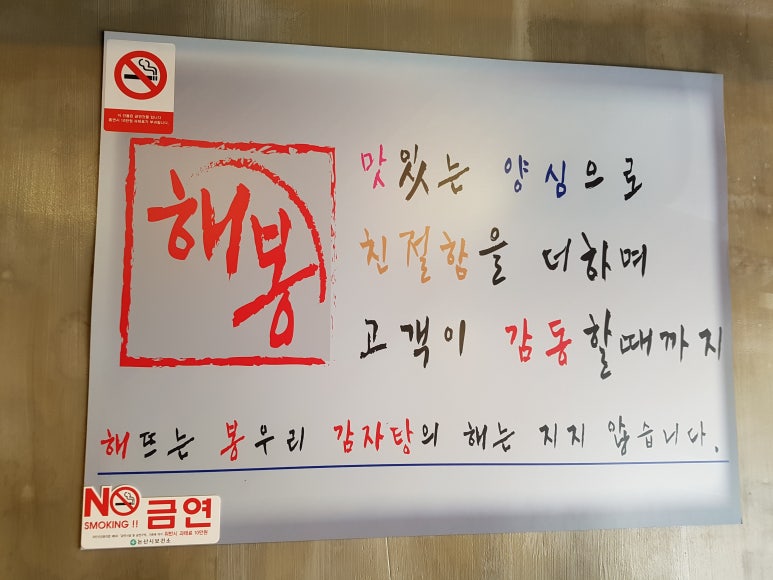 해봉
맛있는 양심으로
친절함을 더하며
고객이 감동할때까지
해뜨는 봉우리 감자탕의 해는 지지 않습니다.
NO
SMOKING !!
금연
위반시 과태료 10만원
논산시보건소